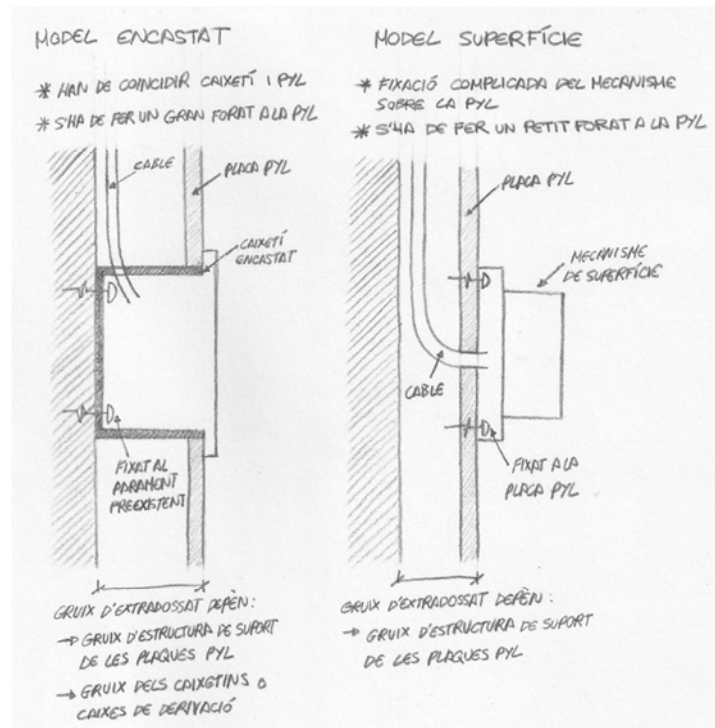 MODEL ENCASTAT
* HAN DE COINCIDIR CAIXETÍ I PYL
* S'HA DE FER UN GRAN FORAT A LA PYL
CABLE
PLACA PYL
CAIXETÍ
ENCASTAT
FIXAT AL
PARAMENT
PREEXISTENT
GRUIX D'EXTRADOSSAT DEPÈN:
→ GRUIX D'ESTRUCTURA DE SUPORT
DE LES PLAQUES PYL
→ GRUIX DELS CAIXETINS O
CAIXES DE DERIVACIÓ
MODEL SUPERFÍCIE
* FIXACIÓ COMPLICADA DEL MECANISME
SOBRE LA PYL
* S'HA DE FER UN PETIT FORAT A LA PYL
PLACA PYL
MECANISME
DE SUPERFÍCIE
CABLE
FIXAT A LA
PLACA PYL
GRUIX D'EXTRADOSSAT DEPÈN:
→ GRUIX D'ESTRUCTURA DE SUPORT
DE LES PLAQUES PYL